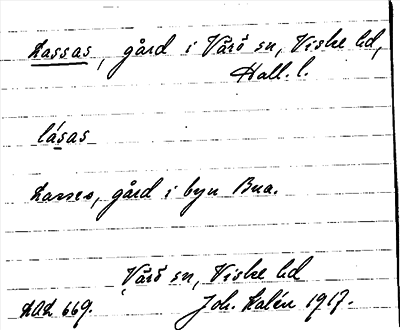 Lassas, gård i Värö sn, Viske hd,
Hall. l.
lásas
Lasses, gård i byn Bua.
Värö sn, Viske hd
LAL 669. Joh. Kalén 1917.